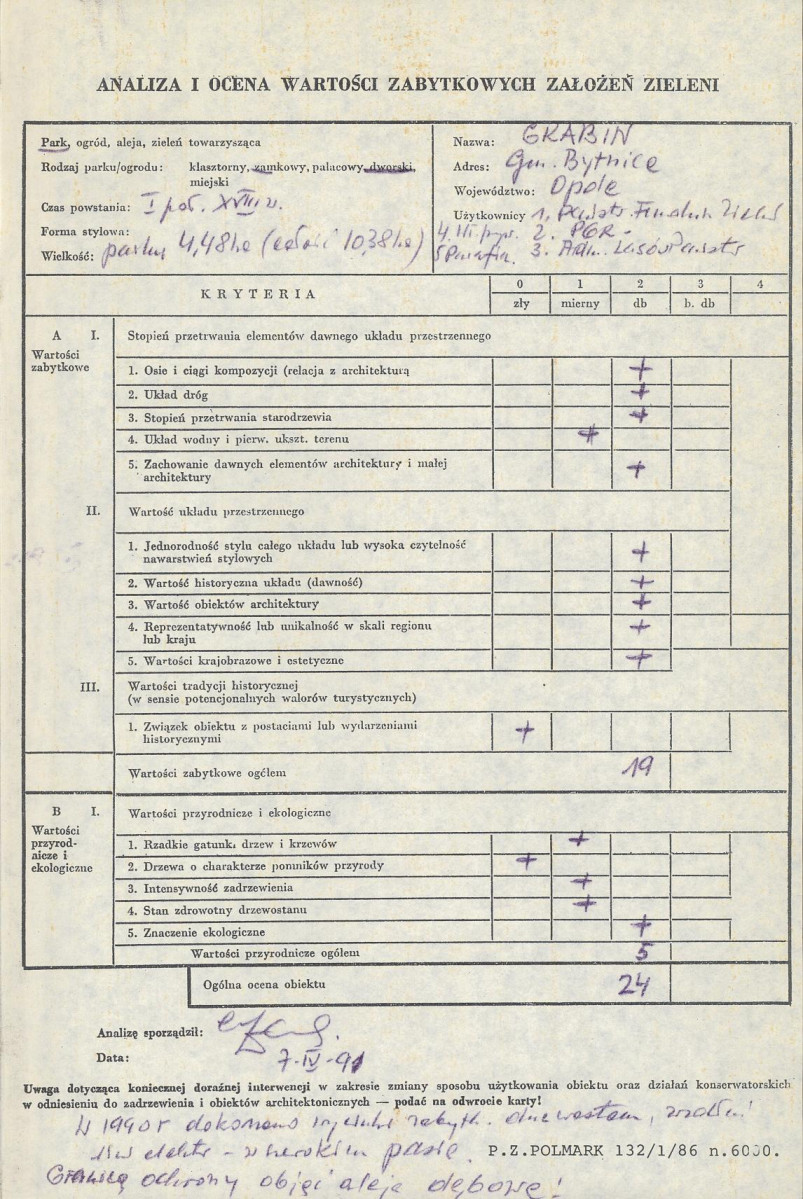 ANALIZA I OCENA WARTOŚCI ZABYTKOWYCH ZAŁOŻEŃ ZIELENI
Park, ogród, aleja, zieleń towarzysząca
Rodzaj parku/ogrodu: klasztorny, zamkowy, pałacowy, dworski,
miejski
Czas powstania: I poł. XVIII w.
Forma stylowa:
Wielkość: parku 4,48 ha (całość 10,38 ha)
Nazwa: GRABIN
Adres: Gm. Bytnica
Województwo: Opole
Użytkownicy 1. Państw. Fundusz Ziemi
4. 2. PGR -
5 Parafia. 3. Adm. Lasów Państw
KRYTERIA
0 1 2 3 4
zły mierny db b. db
A I. Stopień przetrwania elementów dawnego układu przestrzennego
Wartości
zabytkowe
1. Osie i ciągi kompozycji (relacja z architekturą +
2. Układ dróg +
3. Stopień przetrwania starodrzewia +
4. Układ wodny i pierw. ukszt. terenu +
5. Zachowanie dawnych elementów architektury i małej
architektury +
II. Wartość układu przestrzennego
1. Jednorodność stylu całego układu lub wysoka czytelność
nawarstwień stylowych +
2. Wartość historyczna układu (dawność) +
3. Wartość obiektów architektury +
4. Reprezentatywność lub unikalność w skali regionu
lub kraju +
5. Wartości krajobrazowe i estetyczne +
III. Wartości tradycji historycznej
(w sensie potencjonalnych walorów turystycznych)
1. Związek obiektu z postaciami lub wydarzeniami
historycznymi +
Wartości zabytkowe ogółem 19
B I. Wartości przyrodnicze i ekologiczne
Wartości
przyrod-
nicze i
ekologiczne
1. Rzadkie gatunki drzew i krzewów +
2. Drzewa o charakterze pomników przyrody +
3. Intensywność zadrzewienia +
4. Stan zdrowotny drzewostanu +
5. Znaczenie ekologiczne +
Wartości przyrodnicze ogółem 5
Ogólna ocena obiektu 24
Analizę sporządził:
Data: 7-IV-91
Uwaga dotycząca koniecznej doraźnej interwencji w zakresie zmiany sposobu użytkowania obiektu oraz działań konserwatorskich
w odniesieniu do zadrzewienia i obiektów architektonicznych — podać na odwrocie karty!
W 1990 r dokonano wycinki zabytk. drzewostanu, wzdłuż
linii elektr - w szerokim pasie P.Z.POLMARK 132/1/86 n.6000.
Granicą ochrony objąć aleję dębową!